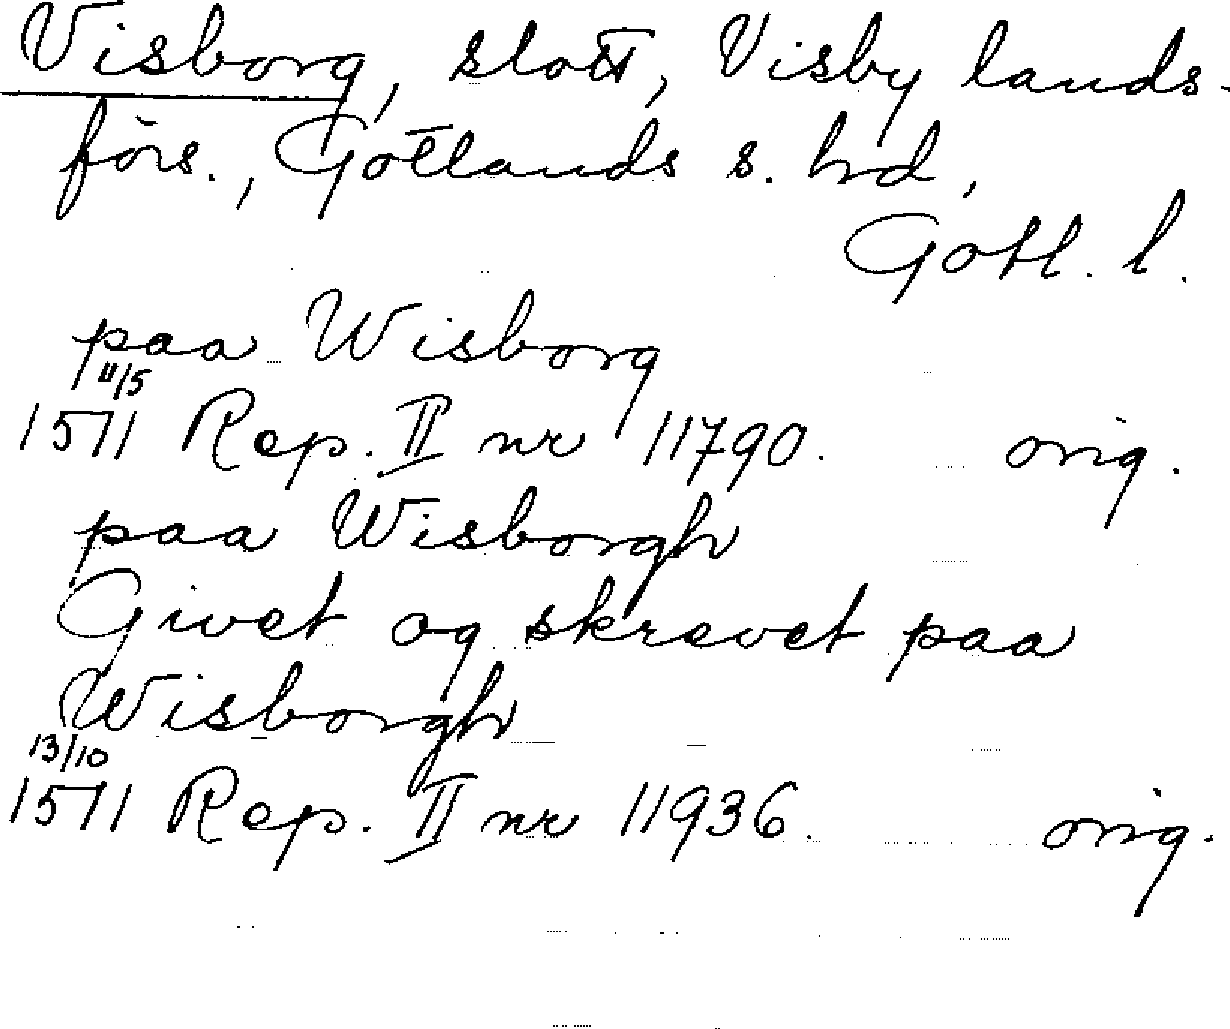 Visborg, slott, Visby lands-
förs., Gotlands s. hd,
Gotl. l.
paa Wisborg
11/5
1571 Rep. II nr 11790. orig.
paa Wisborgh
Givet og skrevet paa
Wisborgh
13/10
1571 Rep. II nr 11936. orig.